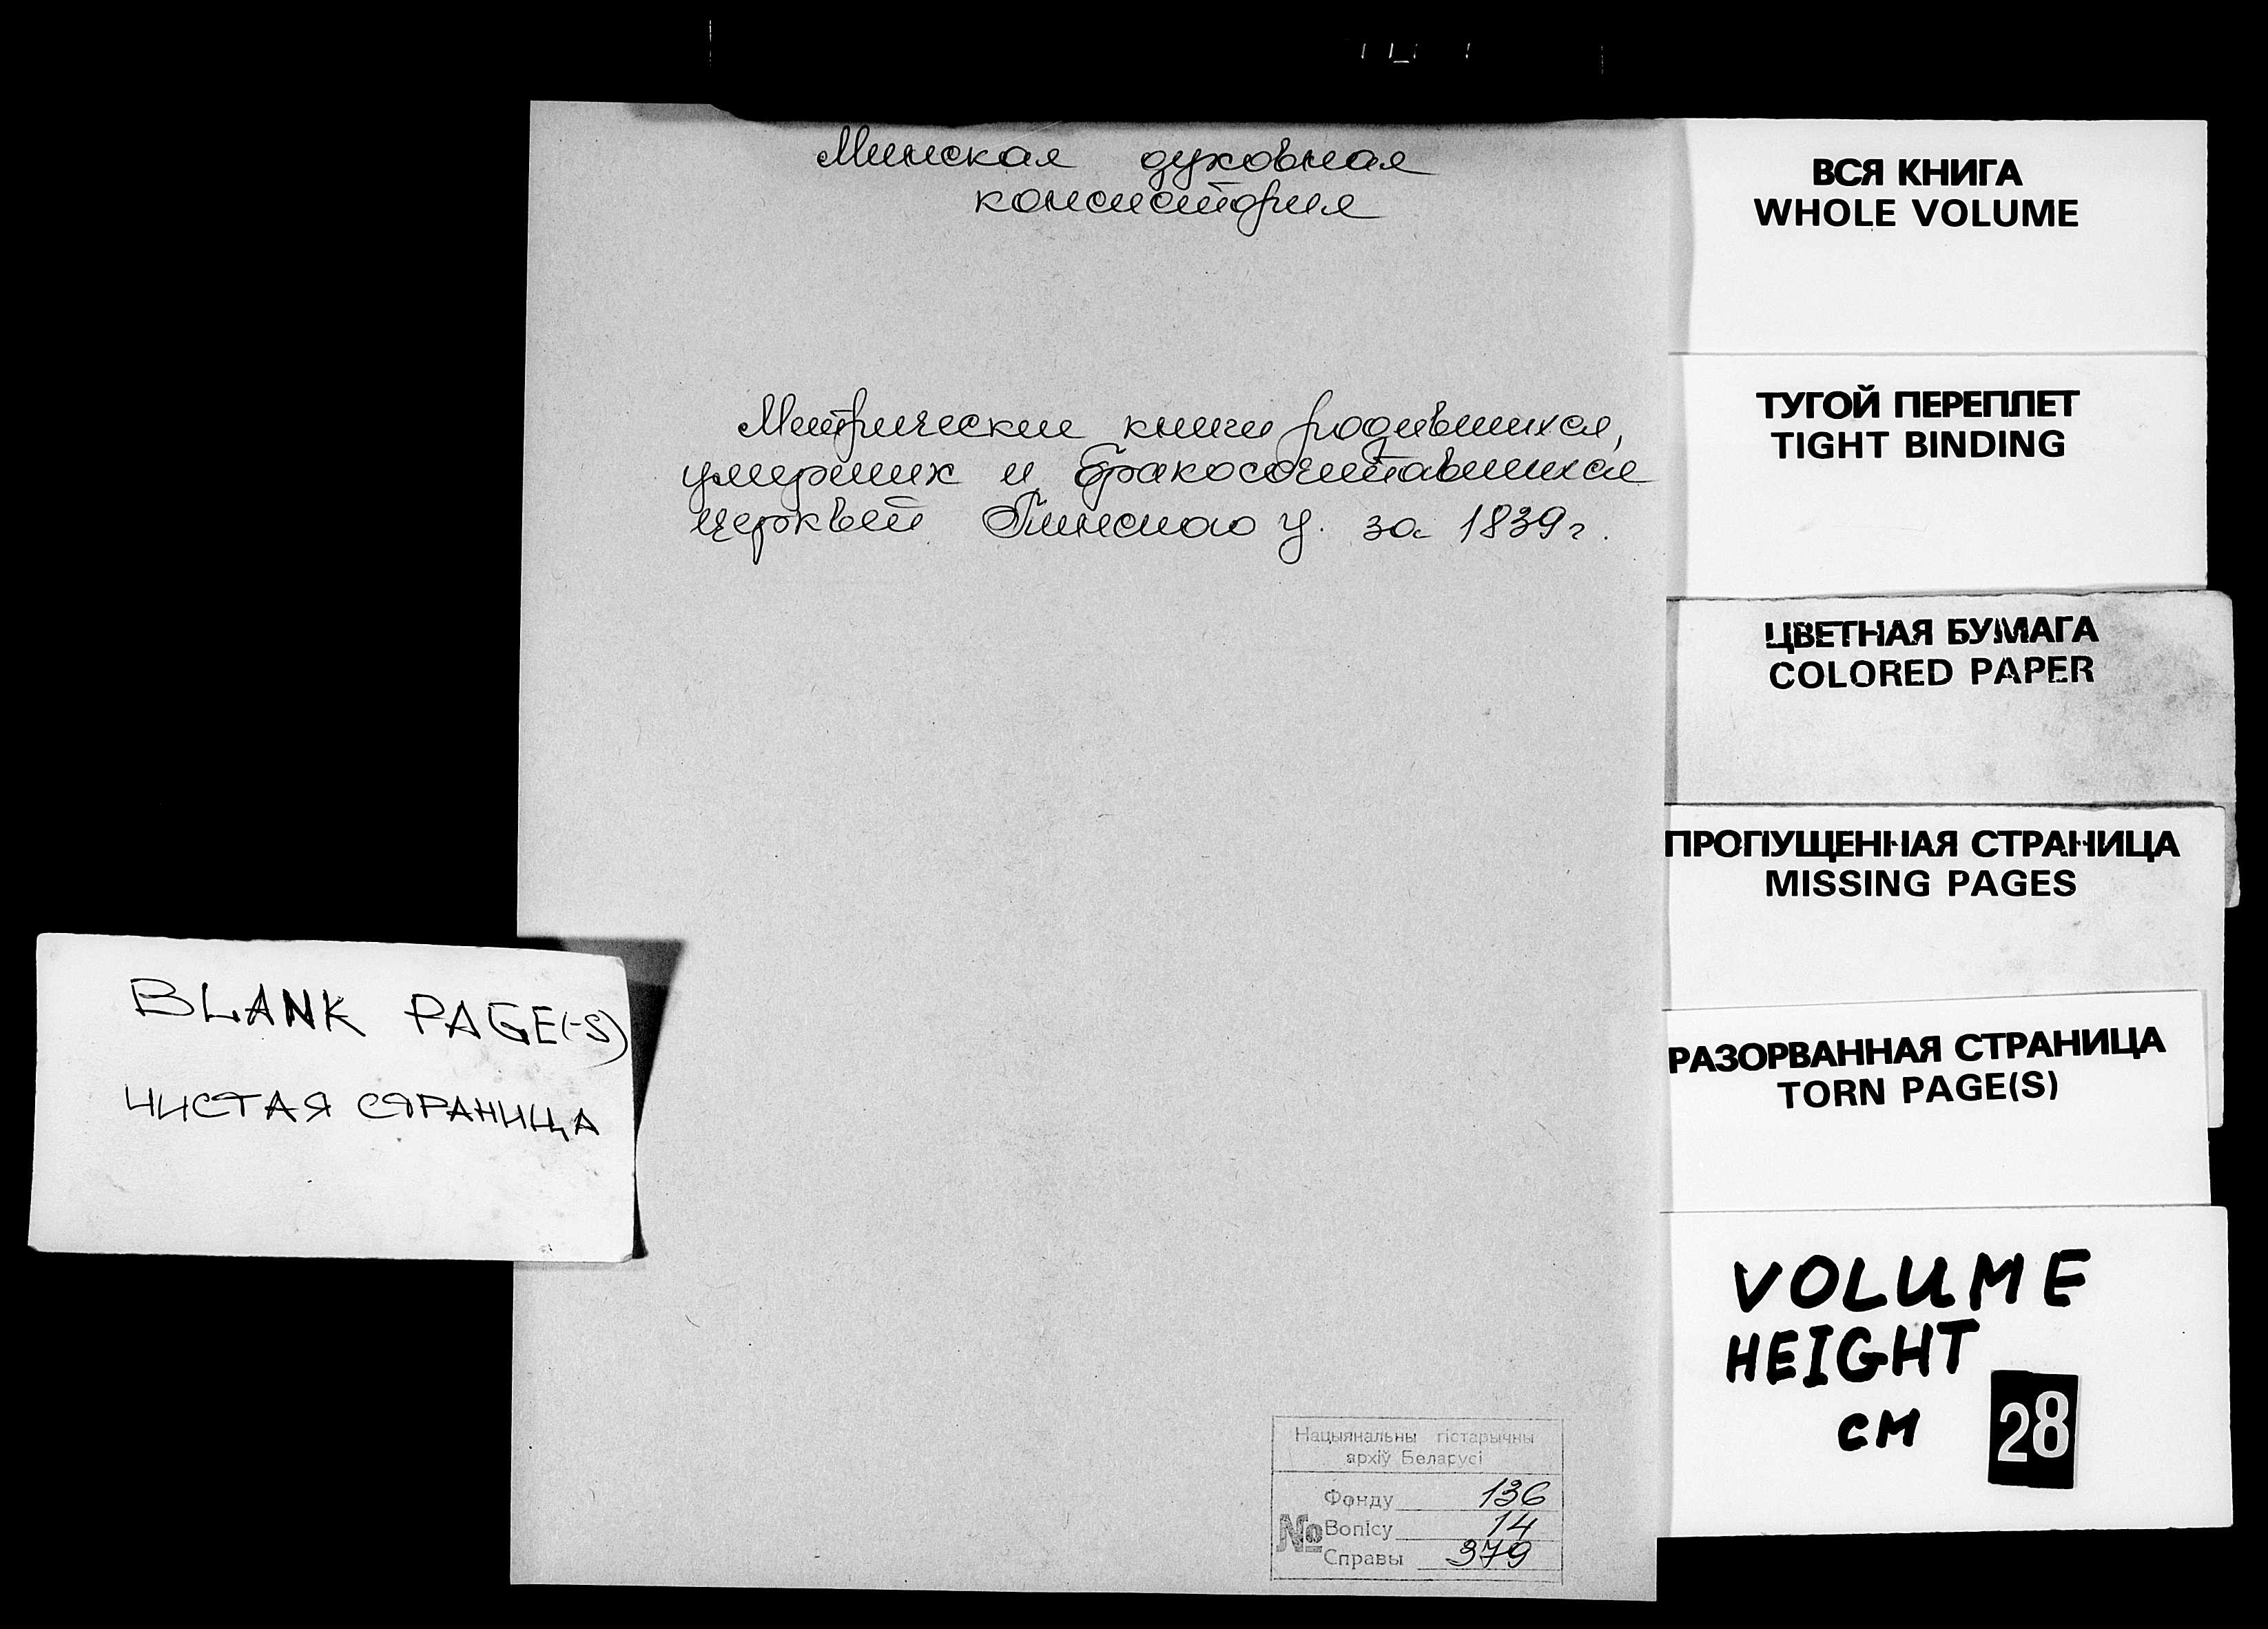 Минская духовная
консистория
Метрические книги родившихся,
умерших и бракосочетавшихся
церквей Пинского у. за 1839 г.
BLANK PAGE(-S)
ЧИСТАЯ СТРАНИЦА
Нацыянальны гістарычны
архіў Беларусі
Фонду 136
№ Вопісу 14
Справы 379
ВСЯ КНИГА
WHOLE VOLUME
ТУГОЙ ПЕРЕПЛЕТ
TIGHT BINDING
ЦВЕТНАЯ БУМАГА
COLORED PAPER
ПРОПУЩЕННАЯ СТРАНИЦА
MISSING PAGES
РАЗОРВАННАЯ СТРАНИЦА
TORN PAGE(S)
VOLUME
HEIGHT
CM 28